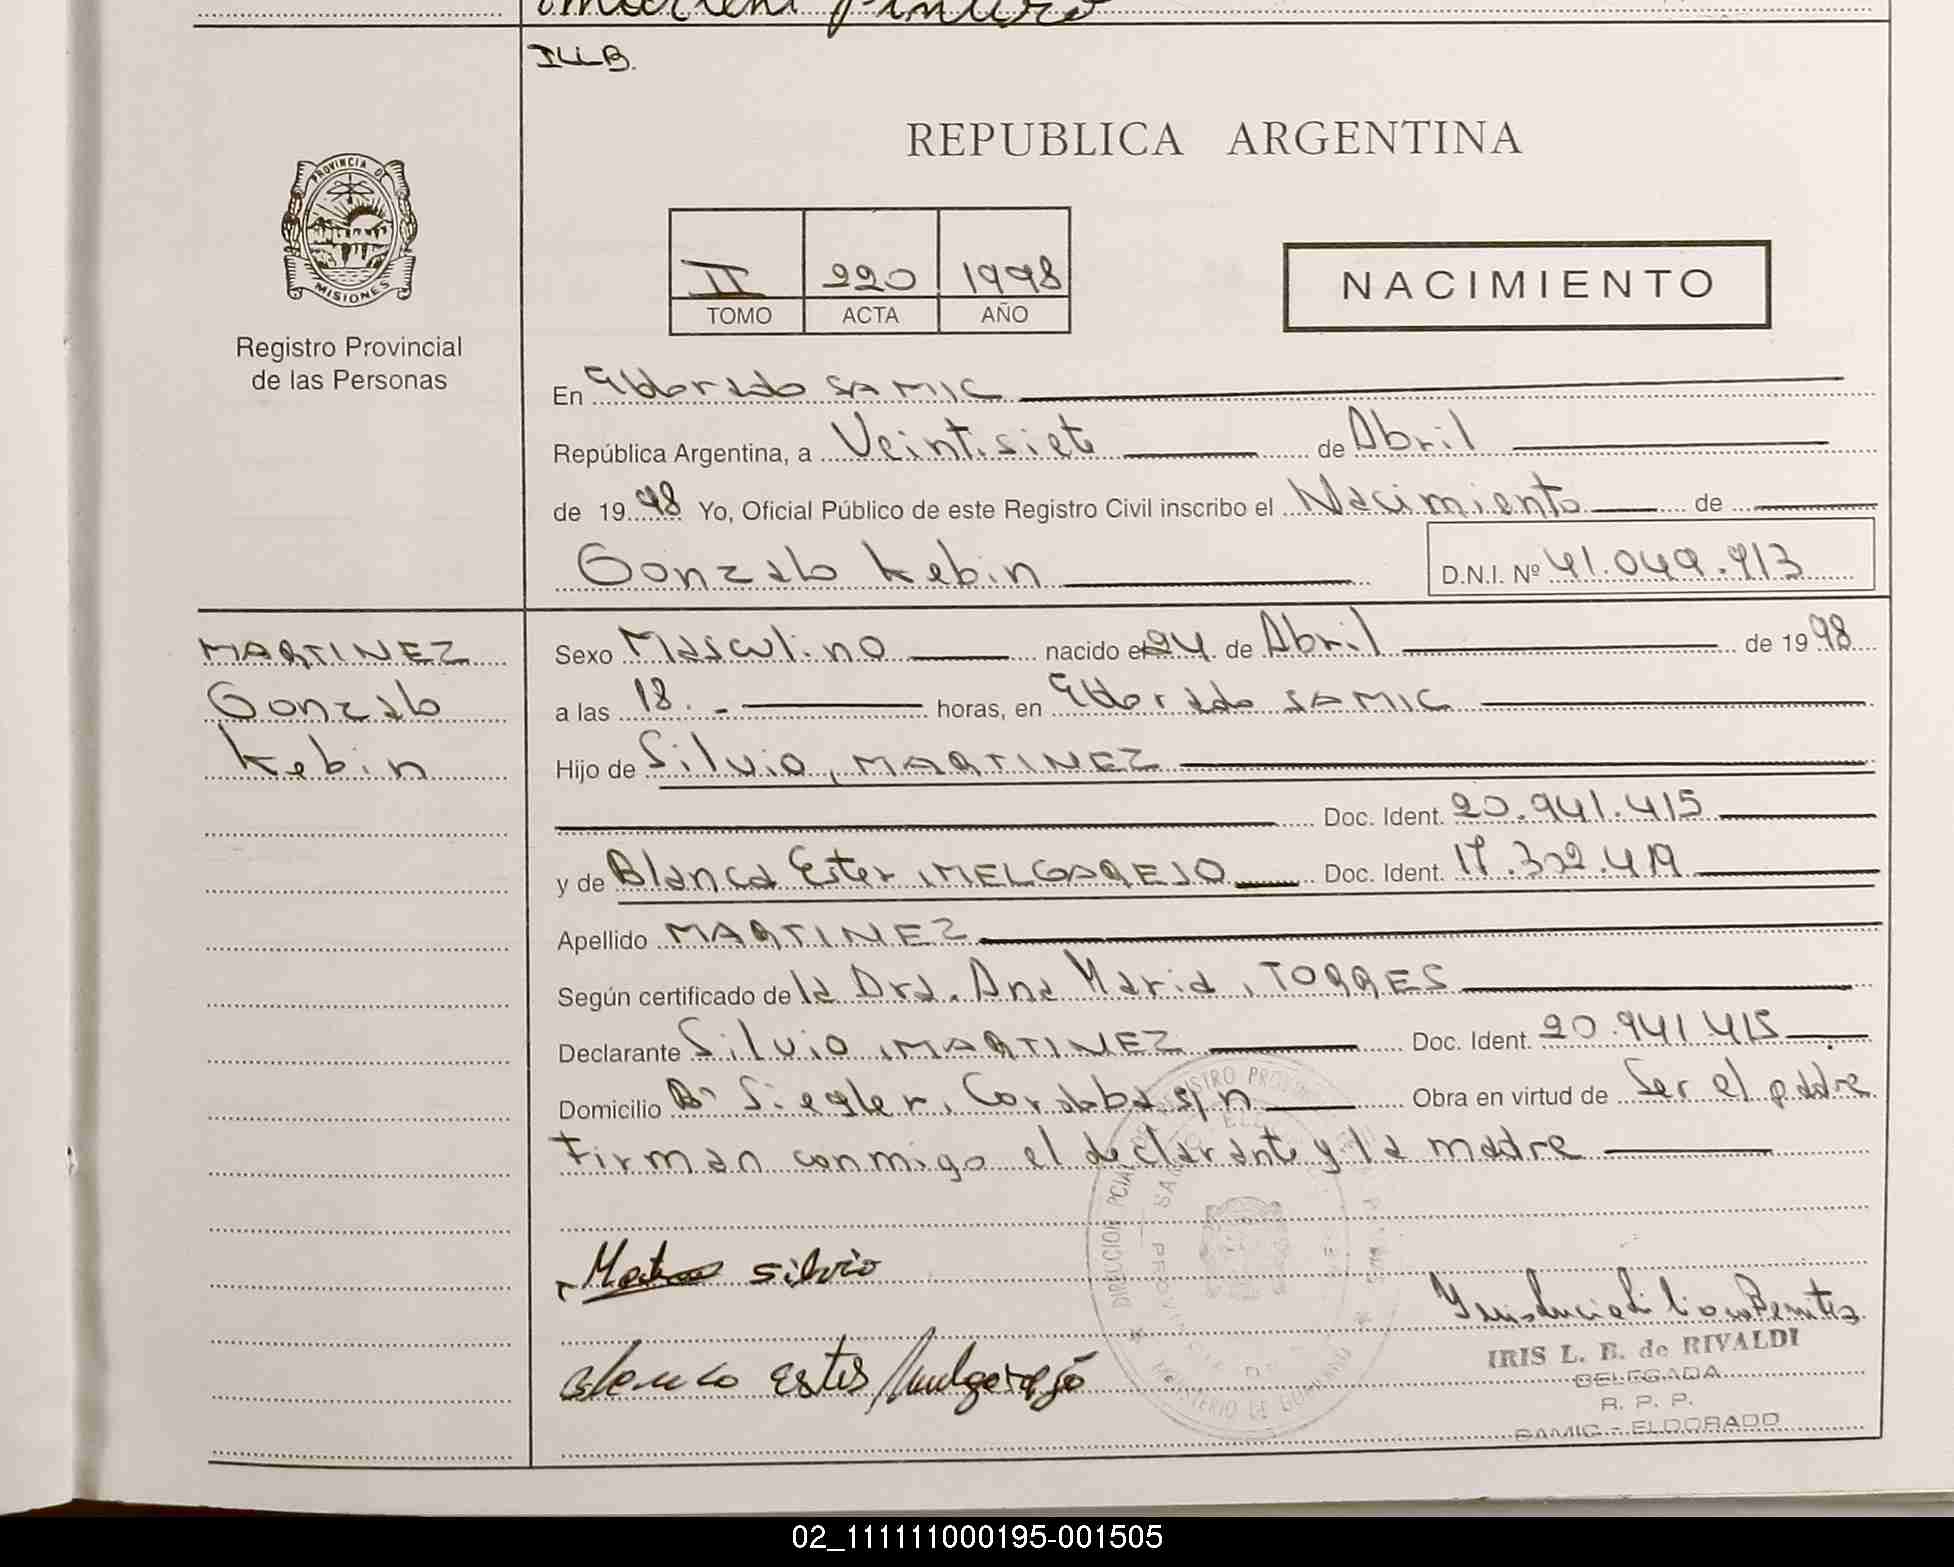 ILLB.
PROVINCIA DE
MISIONES
Registro Provincial
de las Personas
REPUBLICA ARGENTINA
II 220 1998
TOMO ACTA AÑO
NACIMIENTO
En Eldorado SAMIC
República Argentina, a Veintisiete de Abril
de 1998 Yo, Oficial Público de este Registro Civil inscribo el Nacimiento de
Gonzalo Kebin D.N.I. Nº 41.049.913
MARTINEZ
Gonzalo
Kebin
Sexo Masculino nacido el 24 de Abril de 1998
a las 18. - horas, en Eldorado SAMIC
Hijo de Silvio, MARTINEZ
Doc. Ident. 20.941.415
y de Blanca Ester, MELGAREJO Doc. Ident. 17.302.419
Apellido MARTINEZ
Según certificado de la Dra. Ana Maria, TORRES
Declarante Silvio, MARTINEZ Doc. Ident. 20.941.415
Domicilio Bº Siegler, Cordoba s/n Obra en virtud de Ser el padre
Firman conmigo el declarante y la madre
silvio
IRIS L. B. de RIVALDI
DELEGADA
R. P. P.
SAMIC - ELDORADO
02_111111000195-001505